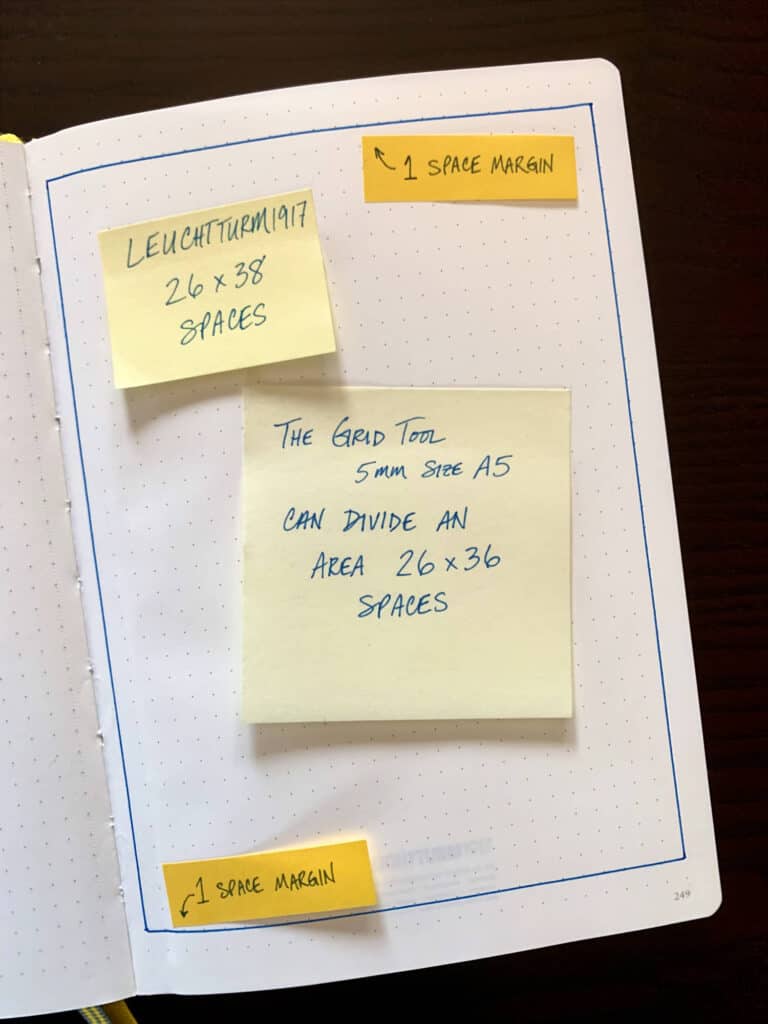 ↖ 1 SPACE MARGIN
LEUCHTTURM1917
26 x 38
SPACES
THE GRID TOOL
5MM SIZE A5
CAN DIVIDE AN
AREA 26 x 36
SPACES
↙ 1 SPACE MARGIN
249